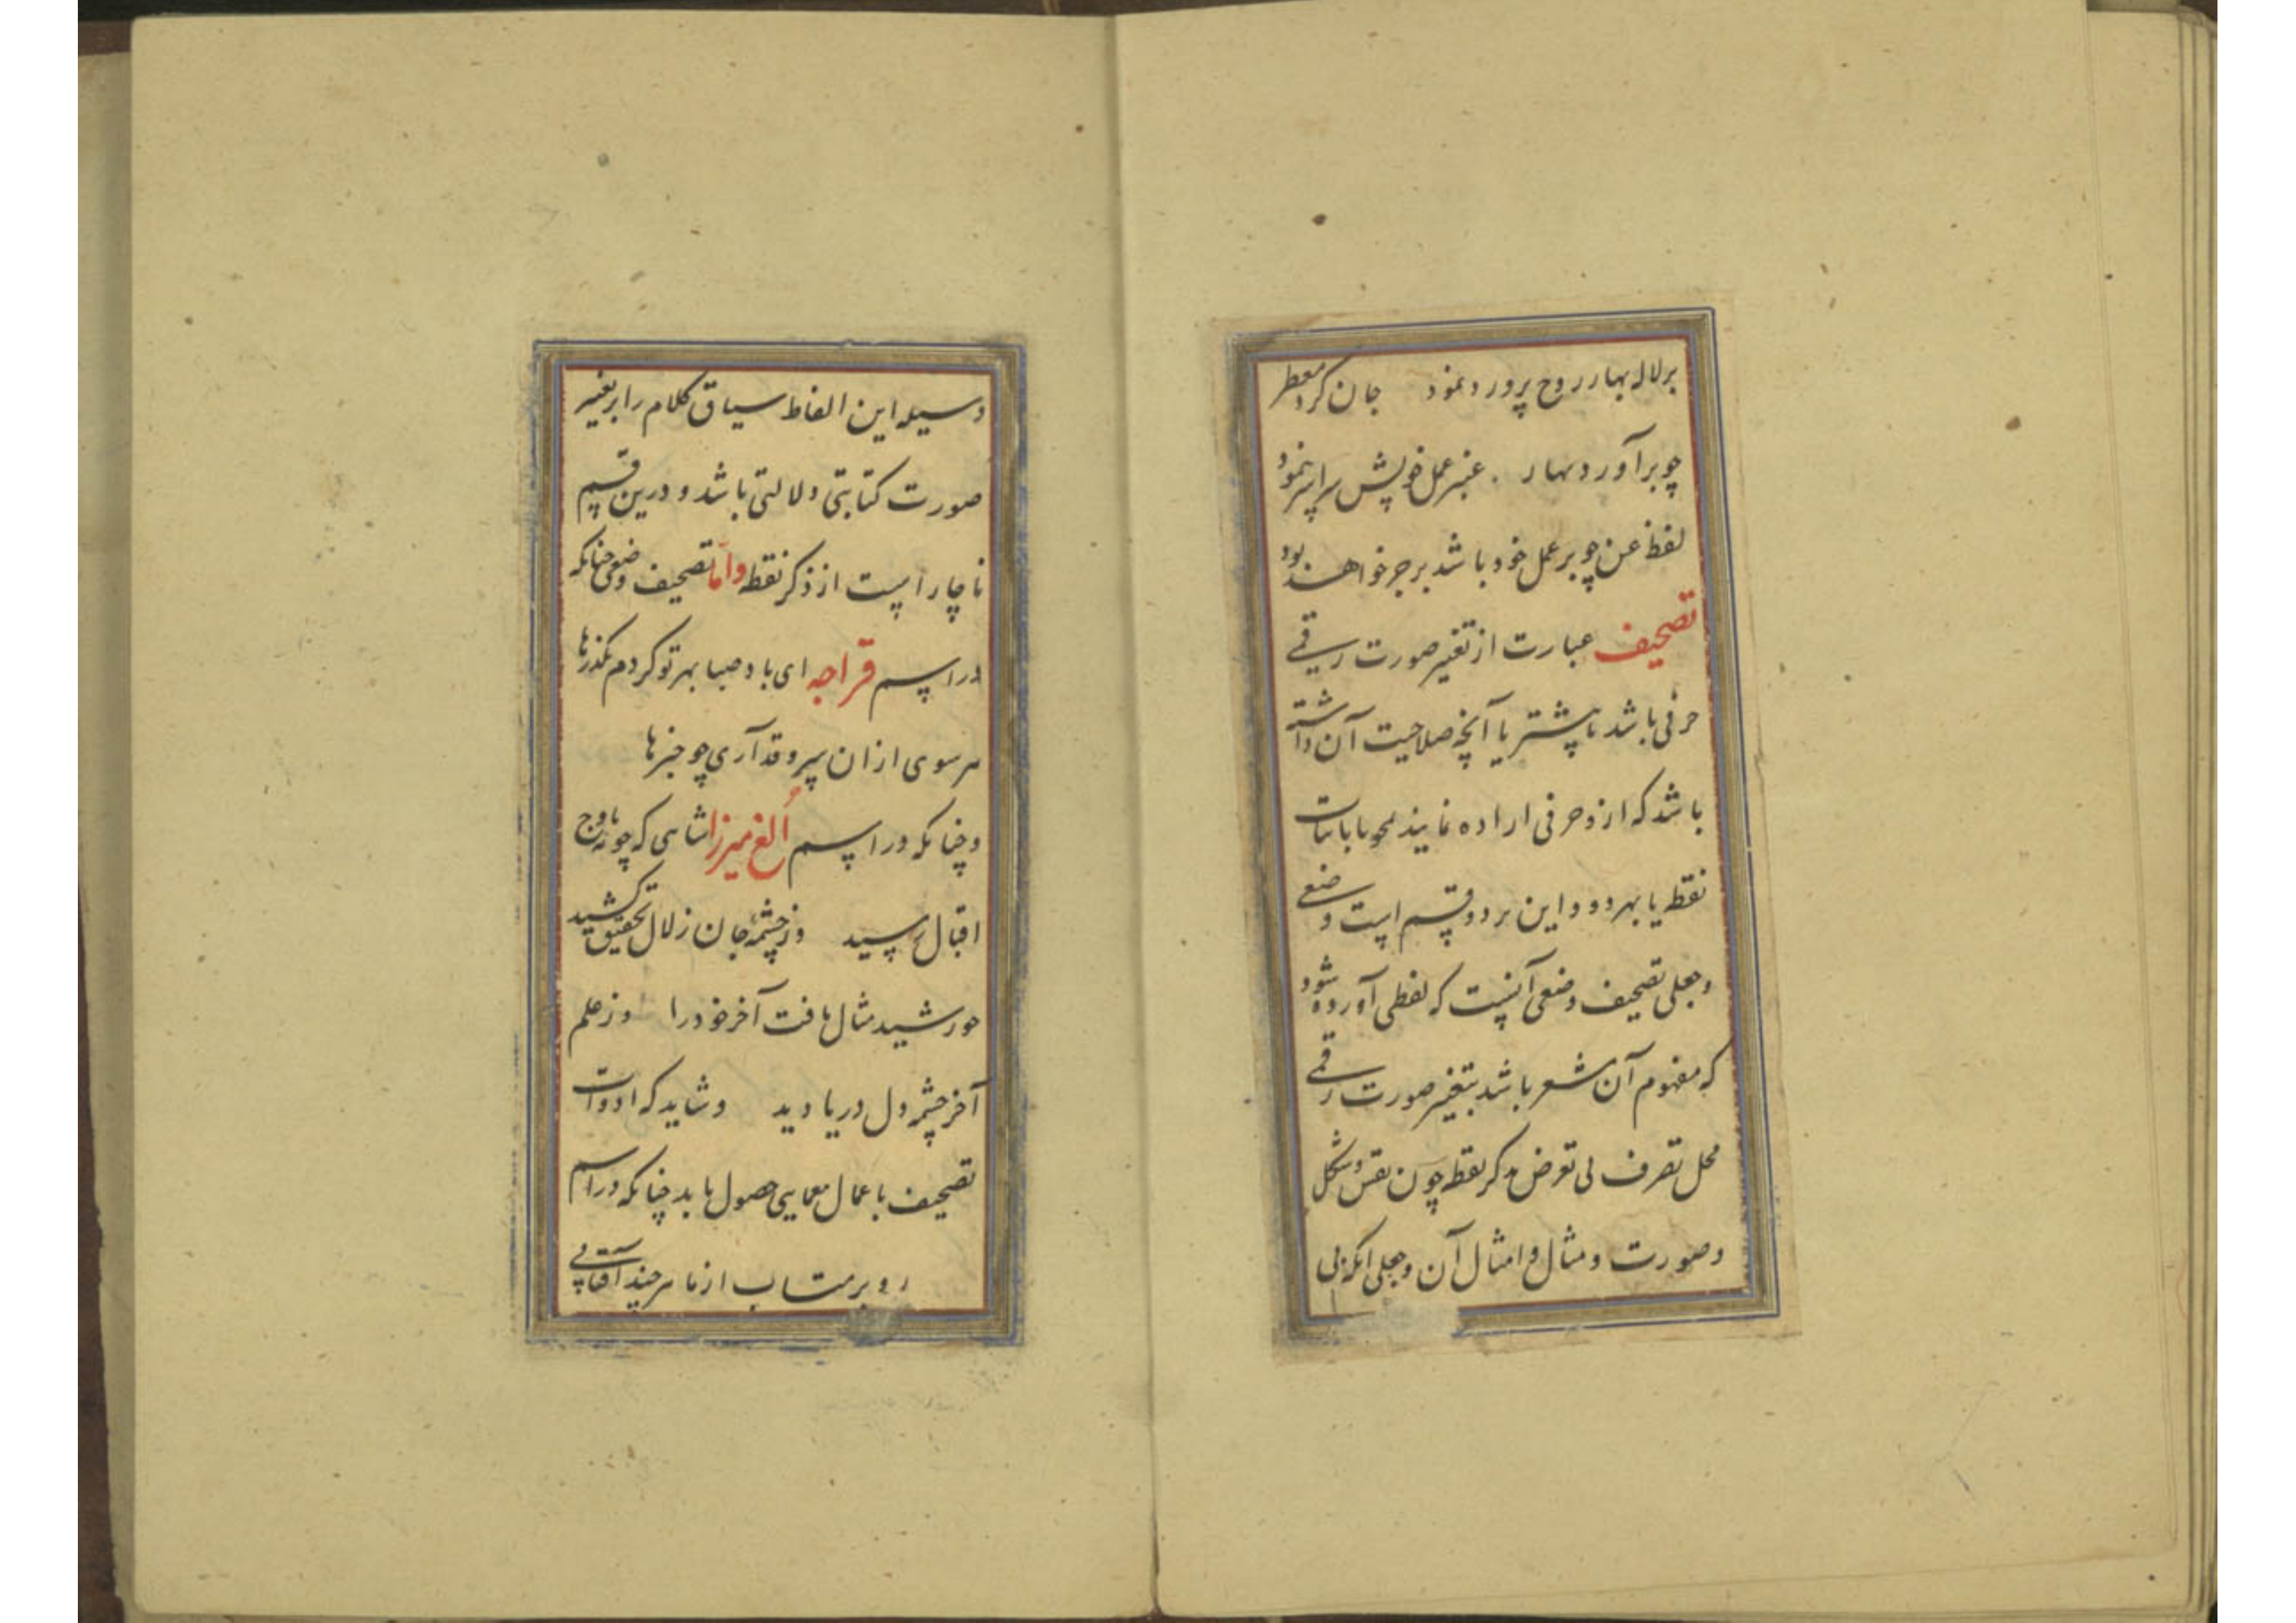 برلاله بهار روح پرورد نمود جان کرد معطر
چو برآورد بهار . عنبر عمل خویش سراسر نمود
لفظ عن چو بر عمل خود باشد بر جر خواهد بود
تصحیف عبارت از تغیر صورت رقمی
حرفی باشد یا پیشتر یا آنچه صلاحیت آن داشته
باشد که ازو حرفی اراده نمایند بمحو یا باثبات
نقطه یا بهر دو و این بر دو قسم است وضعی
و جعلی تصحیف وضعی آنست که لفظی آورده شود
که مفهوم آن مشعر باشد بتغیر صورت رقمی
محل تصرف بی تعرض بذکر نقطه چون نقش و شکل
و صورت و مثال و امثال آن و جعلی آنکه بی
وسیله این الفاظ سیاق کلام را بر تغییر
صورت کتابتی دلالتی باشد و درین قسم
ناچار است از ذکر نقطه و اما تصحیف وضعی چنانکه
در اسم قراجه ای باد صبا بهر تو کردم گذرها
هر سوی ازان سرو قد آری چو خبرها
و چنانکه در اسم اُلغ میرزا شاهی که چو باوج
اقبال رسید وز چشمهٔ جان زلال تحقیق کشید
خورشید مثال یافت آخر خود را وز علم
آخر چشمه دل دریا دید و شاید که ادوات
تصحیف باعمال معمایی حصول یابد چنانکه در اسم
رو بر متاب از ما هر چند آفتابی